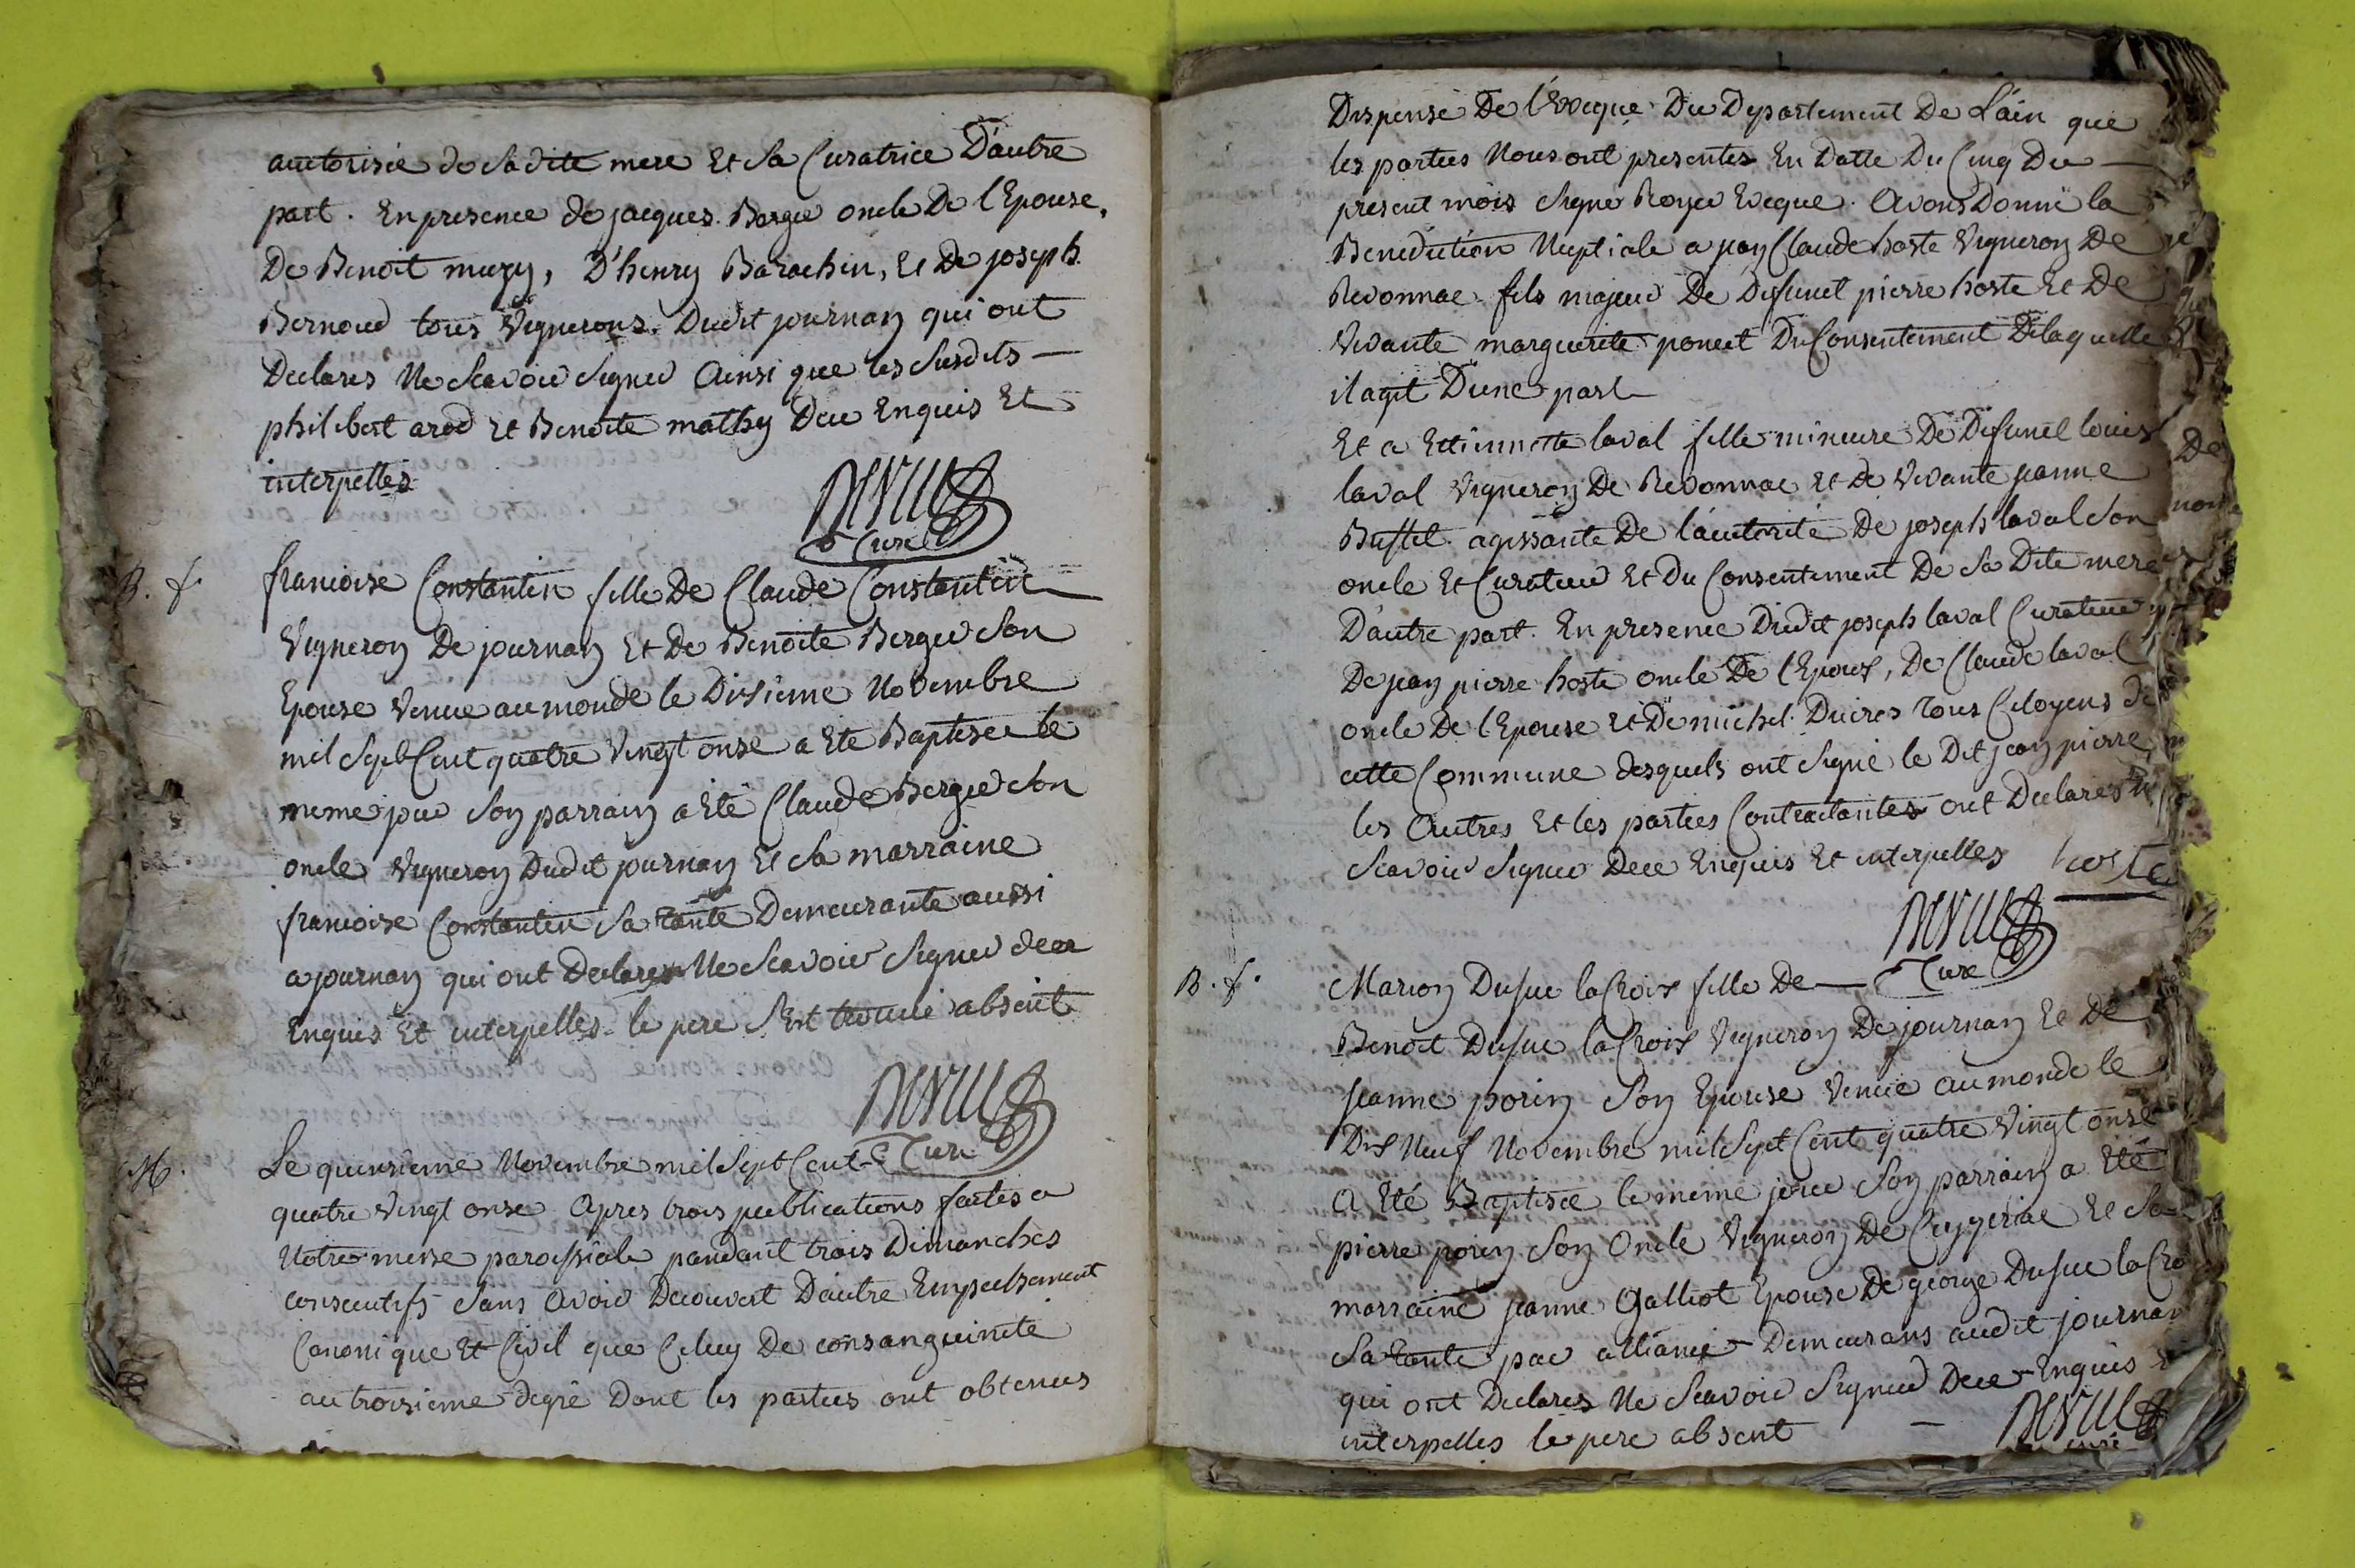 auctorisée de sa dite mere Et sa Curatrice D'autre
part. En presence de jacques Berger oncle De l'Epouse,
De Benoit muzy, D'henry Barachin, Et De joseph
Bernoud tous Vignerons Dudit journan qui ont
Declarés Ne Scavoir Signer Ainsi que les Susdits
philibert arod Et Benoite mathy Dece Enquis Et
interpellés
Curé
B. f.
francoise Constantin fille De Claude Constantin
Vigneron De journan Et De Benoite Berger Son
Epouse Venue au monde le Disieme Novembre
mil Sept Cent quatre Vingt onse a Ete Baptisee le
meme jour Son parrain a Eté Claude Berger Son
oncle Vigneron Dudit journan Et Sa marraine
francoise Constantin Sa tante Demeurante aussi
a journan qui ont Declarés Ne Scavoir Signer dece
Enquis Et interpellés le pere S'Est trouvé absent
Curé
M.
Le quinsieme Novembre mil Sept Cent
quatre Vingt onse Apres trois publications faites a
Notre messe paroissiale pandant trois Dimanches
consecutifs Sans Avoir Decouvert D'autre Empechement
Canonique Et Civil que Celuy De consanguinité
au troisieme degré Dont les parties ont obtenus
Dispense De l'Eveque Du Departement De L'ain que
les parties Nous ont presentés En Datte Du Cinq Du
present mois Signé Royer Eveque. Avons Donné la
Benediction Nuptiale a jean Claude hoste Vigneron De
Revonnac fils majeur De Defunct pierre hoste Et De
Vivante marguerite poncet Du Consentement De laquelle
il agit D'une part
Et a Ettiennette laval fille mineure De Defunct louis
laval Vigneron De Revonnac Et de Vivante jeanne
agissante De l'autorité De joseph laval Son
oncle Et Curateur Et du Consentement De Sa Dite mere
D'autre part. En presence Dudit joseph laval Curateur
De jean pierre hoste oncle De l'Epoux, De Claude laval
oncle De l'Epouse Et De michel Tous Citoyens de
cette Commune desquels ont Signé le Dit jean pierre
les Autres Et les parties Contractantes ont Declarés Ne
Scavoir Signer Dece Enquis Et interpellés hoste
Curé
B. f.
Marion Dufue la Croix fille De
Benoit Dufue la Croix Vigneron De journan Et De
jeanne porin Son Epouse Venue au monde le
Dix Neuf Novembre mil Sept Cent quatre Vingt onse
A Eté Baptisée le meme jour Son parrain a Eté
pierre porin Son Oncle Vigneron De Ceyzeriac Et Sa
marraine jeanne Galliot Epouse De george Dufue la Cro
Sa tante par alliance Demeurans audit journan
qui ont Declarés Ne Scavoir Signer Dece Enquis
interpellés le pere absent
curé